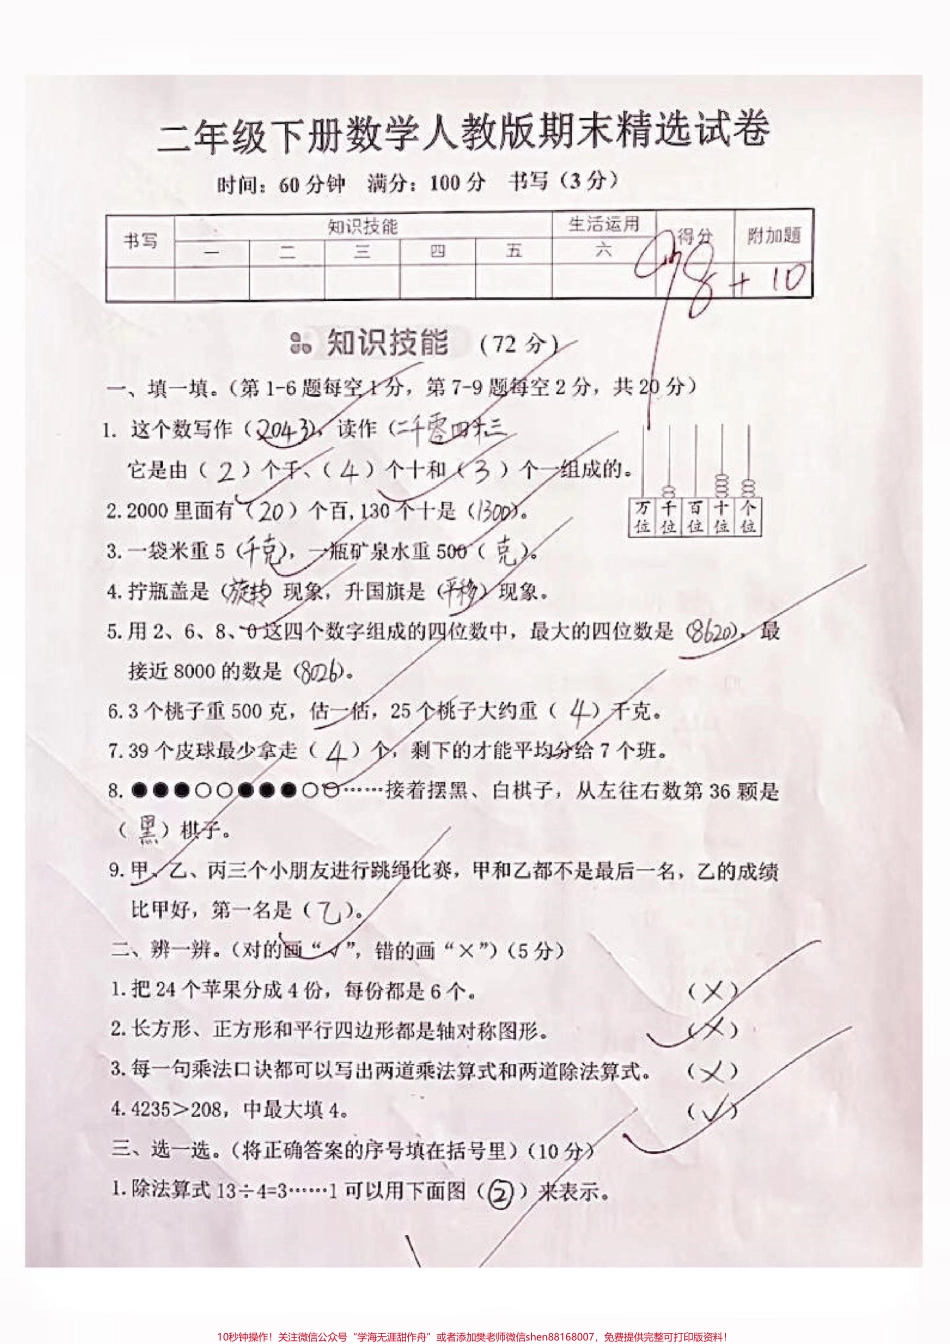 二年级下册数学人教版期末精选试卷
时间：60分钟 满分：100分 书写（3分）
书写 知识技能 生活运用 得分 附加题
一 二 三 四 五 六
98 + 10
知识技能 （72分）
一、填一填。（第1-6题每空1分，第7-9题每空2分，共20分）
1. 这个数写作（2043），读作（二千零四十三
它是由（2）个千、（4）个十和（3）个一组成的。
万位 千位 百位 十位 个位
2.2000里面有（20）个百,130个十是（1300）。
3.一袋米重5（千克），一瓶矿泉水重500（克）。
4.拧瓶盖是（旋转）现象，升国旗是（平移）现象。
5.用2、6、8、0这四个数字组成的四位数中，最大的四位数是（8620），最
接近8000的数是（8026）。
6.3个桃子重500克，估一估，25个桃子大约重（4）千克。
7.39个皮球最少拿走（4）个，剩下的才能平均分给7个班。
8.●●●○○●●●○○……接着摆黑、白棋子，从左往右数第36颗是
（黑）棋子。
9.甲、乙、丙三个小朋友进行跳绳比赛，甲和乙都不是最后一名，乙的成绩
比甲好，第一名是（乙）。
二、辨一辨。（对的画“√”，错的画“×”）（5分）
1.把24个苹果分成4份，每份都是6个。 （×）
2.长方形、正方形和平行四边形都是轴对称图形。 （×）
3.每一句乘法口诀都可以写出两道乘法算式和两道除法算式。 （×）
4.4235＞208，中最大填4。 （√）
三、选一选。（将正确答案的序号填在括号里）（10分）
1.除法算式13÷4=3……1可以用下面图（②）来表示。
10秒钟操作！关注微信公众号“学海无涯甜作舟”或者添加樊老师微信shen88168007，免费提供完整可打印版资料！